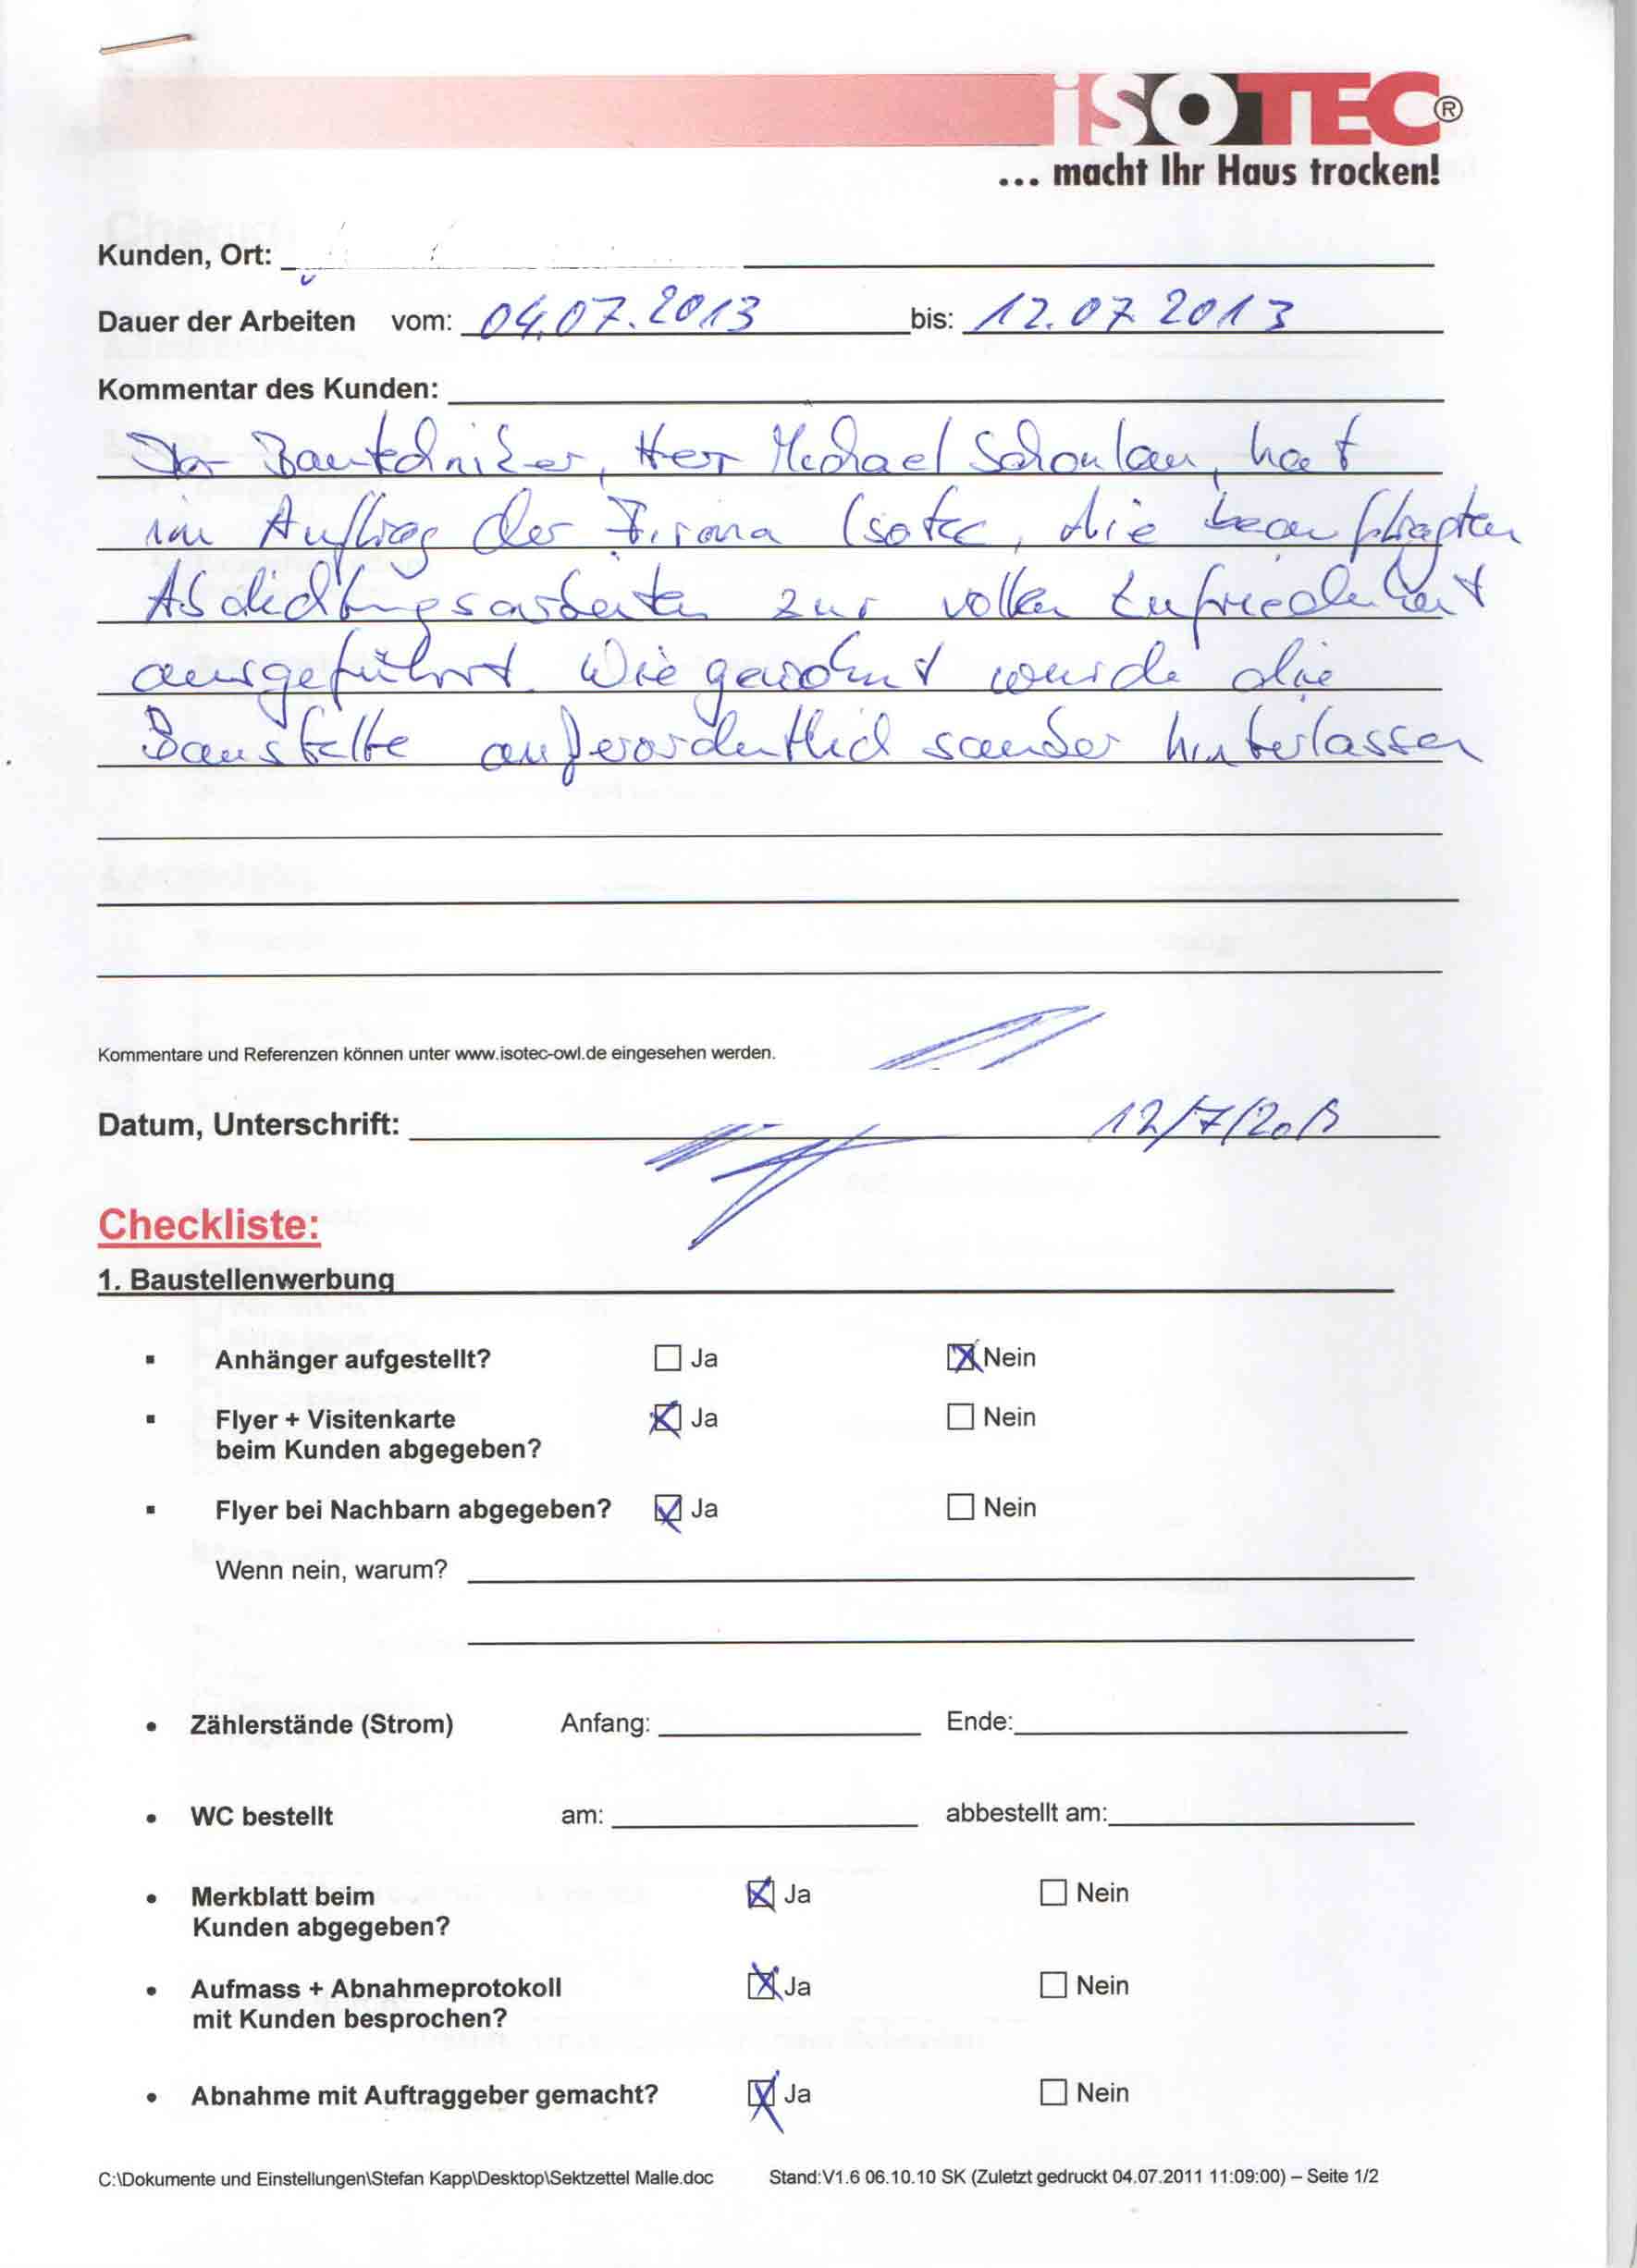 iSOTEC®
... macht Ihr Haus trocken!
Kunden, Ort:
Dauer der Arbeiten vom: 04.07.2013 bis: 12.07.2013
Kommentar des Kunden:
Der Bautechniker, Herr Michael Schonlau, hat
im Auftrag der Firma Isotec, die beauftragten
Abdichtungsarbeiten zur vollen Zufriedenheit
ausgeführt. Wie gewohnt wurde die
Baustelle außerordentlich sauber hinterlassen
Kommentare und Referenzen können unter www.isotec-owl.de eingesehen werden.
Datum, Unterschrift: 12/7/2013
Checkliste:
1. Baustellenwerbung
▪ Anhänger aufgestellt? ☐ Ja ☒ Nein
▪ Flyer + Visitenkarte ☒ Ja ☐ Nein
beim Kunden abgegeben?
▪ Flyer bei Nachbarn abgegeben? ☒ Ja ☐ Nein
Wenn nein, warum?
• Zählerstände (Strom) Anfang: Ende:
• WC bestellt am: abbestellt am:
• Merkblatt beim ☒ Ja ☐ Nein
Kunden abgegeben?
• Aufmass + Abnahmeprotokoll ☒ Ja ☐ Nein
mit Kunden besprochen?
• Abnahme mit Auftraggeber gemacht? ☒ Ja ☐ Nein
C:\Dokumente und Einstellungen\Stefan Kapp\Desktop\Sektzettel Malle.doc Stand:V1.6 06.10.10 SK (Zuletzt gedruckt 04.07.2011 11:09:00) – Seite 1/2